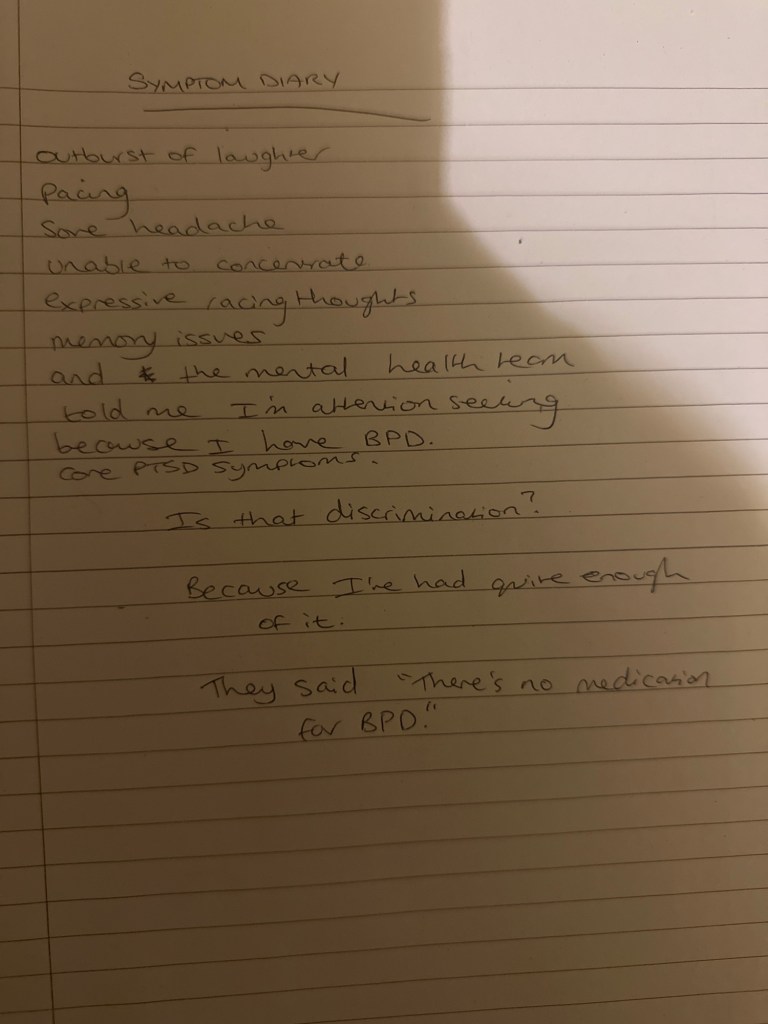 SYMPTOM DIARY
outburst of laughter
Pacing
Sore headache
unable to concentrate
expressive racing thoughts
memory issues
and the mental health team
told me I'm attention seeking
because I have BPD.
core PTSD symptoms.
Is that discrimination?
Because I've had quite enough
of it.
They said "There's no medication
for BPD."